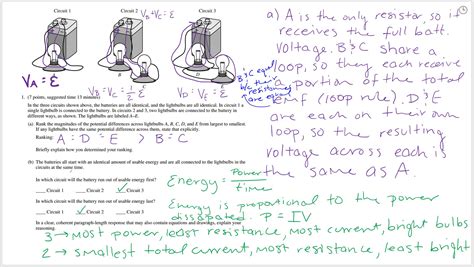 Circuit 1
Circuit 2
Circuit 3
V_B+V_C = ℰ
V_A = ℰ
V_B = V_C = ½ ℰ
V_D = V_E = ℰ
B
D
1. (7 points, suggested time 13 minutes)
In the three circuits shown above, the batteries are all identical, and the lightbulbs are all identical. In circuit 1 a
single lightbulb is connected to the battery. In circuits 2 and 3, two lightbulbs are connected to the battery in
different ways, as shown. The lightbulbs are labeled A–E.
(a) Rank the magnitudes of the potential differences across lightbulbs A, B, C, D, and E from largest to smallest.
If any lightbulbs have the same potential difference across them, state that explicitly.
Ranking: A = D = E > B = C
Briefly explain how you determined your ranking.
(b) The batteries all start with an identical amount of usable energy and are all connected to the lightbulbs in the
circuits at the same time.
In which circuit will the battery run out of usable energy first?
___ Circuit 1 ___ Circuit 2 ___ Circuit 3
In which circuit will the battery run out of usable energy last?
___ Circuit 1 ___ Circuit 2 ___ Circuit 3
In a clear, coherent paragraph-length response that may also contain equations and drawings, explain your
reasoning.
a) A is the only resistor, so it
receives the full batt.
voltage. B & C share a
loop, so they each receive
a portion of the total
emf (loop rule). D & E
are each on their own
loop, so the resulting
voltage across each is
the same as A.
B & C equal
b/c their
resistances
are eq.
Energy = Power/time
Energy is proportional to the power
dissipated. P = IV
3 → most power, least resistance, most current, bright bulbs
2 → smallest total current, most resistance, least bright